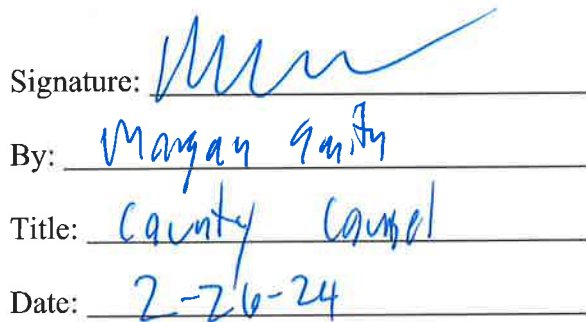 Signature:
By: Morgan
Title: County Counsel
Date: 2-26-24